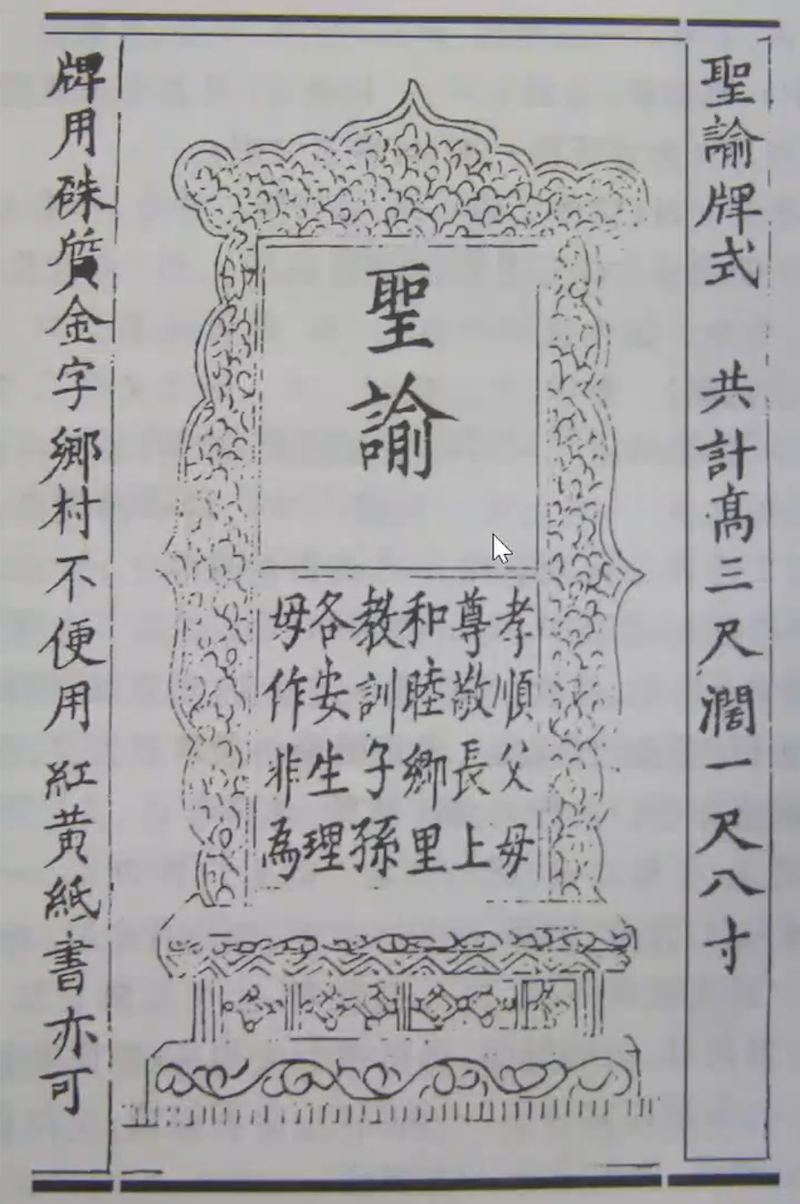 聖諭牌式 共計髙三尺濶一尺八寸
聖諭
孝順父母
尊敬長上
和睦鄉里
教訓子孫
各安生理
毋作非為
牌用硃質金字鄉村不便用紅黄紙書亦可